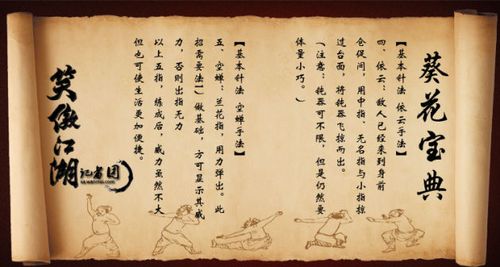 葵花宝典
【基本针法 依云手法】
四、依云：敌人已经来到身前
仓促间，用中指、无名指与小指掠
过台面，将钝器飞掠而出。
（注意：钝器可不限，但是仍然要
体量小巧。）
【基本针法 空蝉手法】
五、空蝉：兰花指，用力弹出。此
招需要法一做基础，方可显示其威
力，否则出指无力
以上五指，练成后，威力虽然不大
但也可使生活更加便捷。
笑傲江湖
记者团